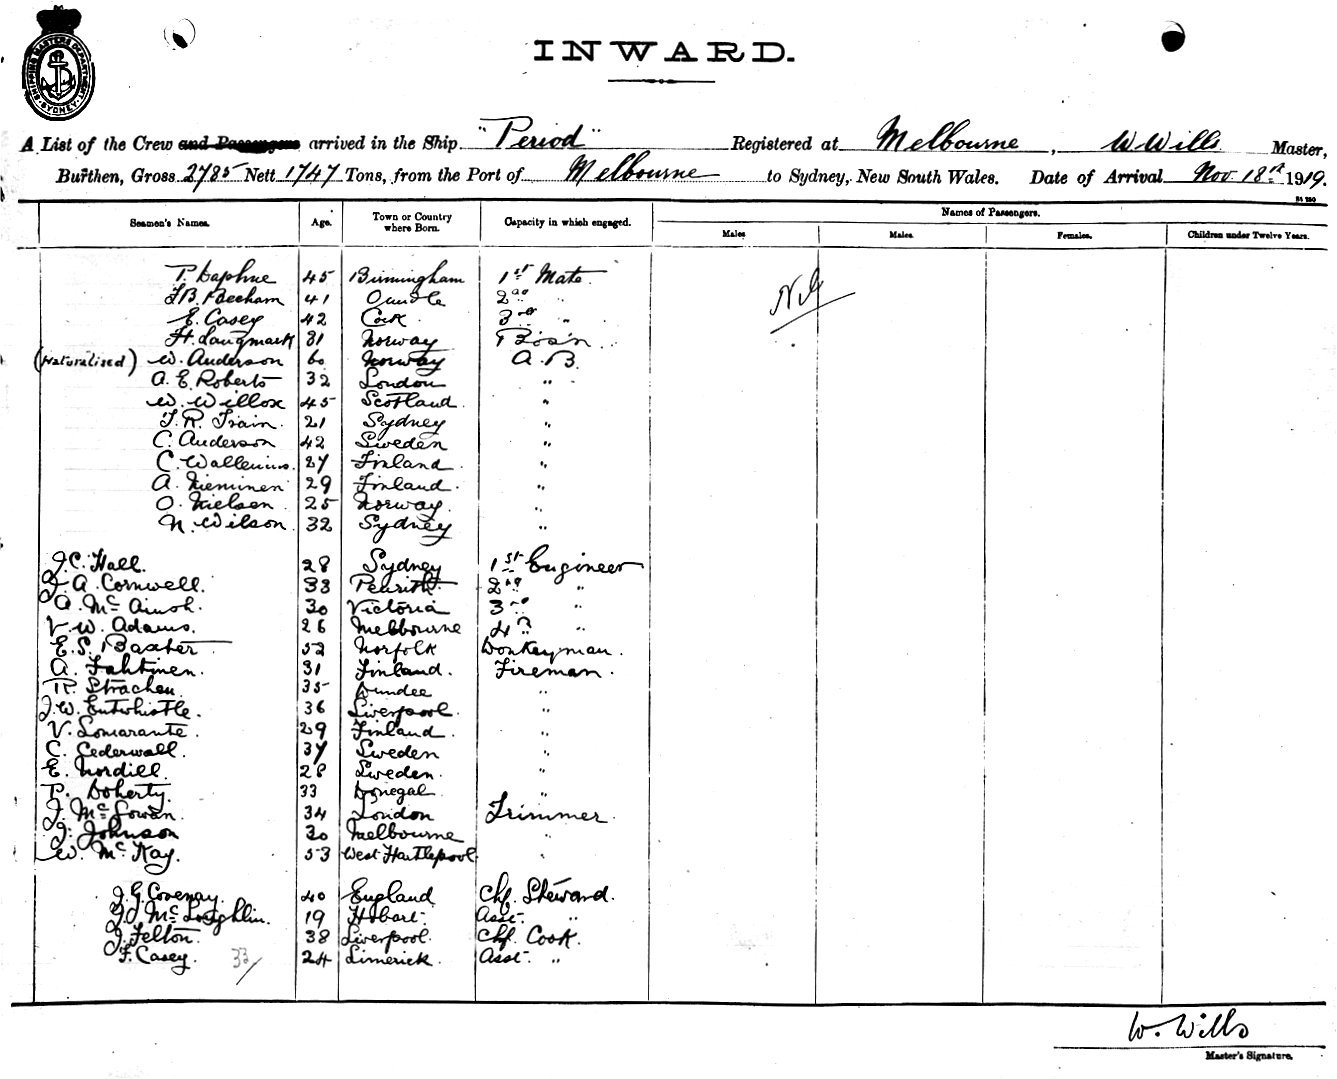 SHIPPING MASTERS DEPARTMENT SYDNEY
INWARD.
A List of the Crew and Passengers arrived in the Ship "Period" Registered at Melbourne, W Wills Master,
Burthen, Gross 2785 Nett 1747 Tons, from the Port of Melbourne to Sydney, New South Wales. Date of Arrival Nov. 18th 1919.
Seamen's Names. Age. Town or Country where Born. Capacity in which engaged. Names of Passengers.
Males Males. Females. Children under Twelve Years.
P. Daphne 45 Birmingham 1st Mate. Nil
F.B. Beecham 41 Oundle 2nd "
E. Casey 42 Cork 3rd "
H. Langmark 31 Norway Bos'n
(Naturalised) W. Anderson 60 Norway A.B.
A. E. Roberts 32 London "
W. Willox 45 Scotland "
T. R. Train. 21 Sydney "
C. Anderson 42 Sweden "
C. Wallenius. 27 Finland "
A. Nieminen 29 Finland. "
O. Nielsen 25 Norway. "
N. Wilson 32 Sydney "
J.C. Hall. 28 Sydney 1st Engineer
J. A. Cornwell. 33 Penrith 2nd "
A. Mc Ainsh. 30 Victoria 3rd "
V. W. Adams. 26 Melbourne 4th "
E. S. Baxter 52 Norfolk Donkeyman.
A. Lahtinen. 31 Finland. Fireman.
R. Strachen. 35 Dundee "
J. W. Entwhistle. 36 Liverpool. "
V. Lomarante. 29 Finland. "
C. Cederwall. 37 Sweden "
E. Nordill. 28 Sweden. "
P. Doherty. 33 Donegal "
J. Mc Gowan. 34 London Trimmer.
J. Johnson 30 Melbourne "
W. Mc Kay. 53 West Hartlepool "
J. G. Covenay. 40 England Chf. Steward.
Mc Loughlin. 19 Hobart. Asst. "
J. Felton. 38 Liverpool. Chf. Cook.
F. Casey. 33/ 24 Limerick. Asst. "
W. Wills
Master's Signature.